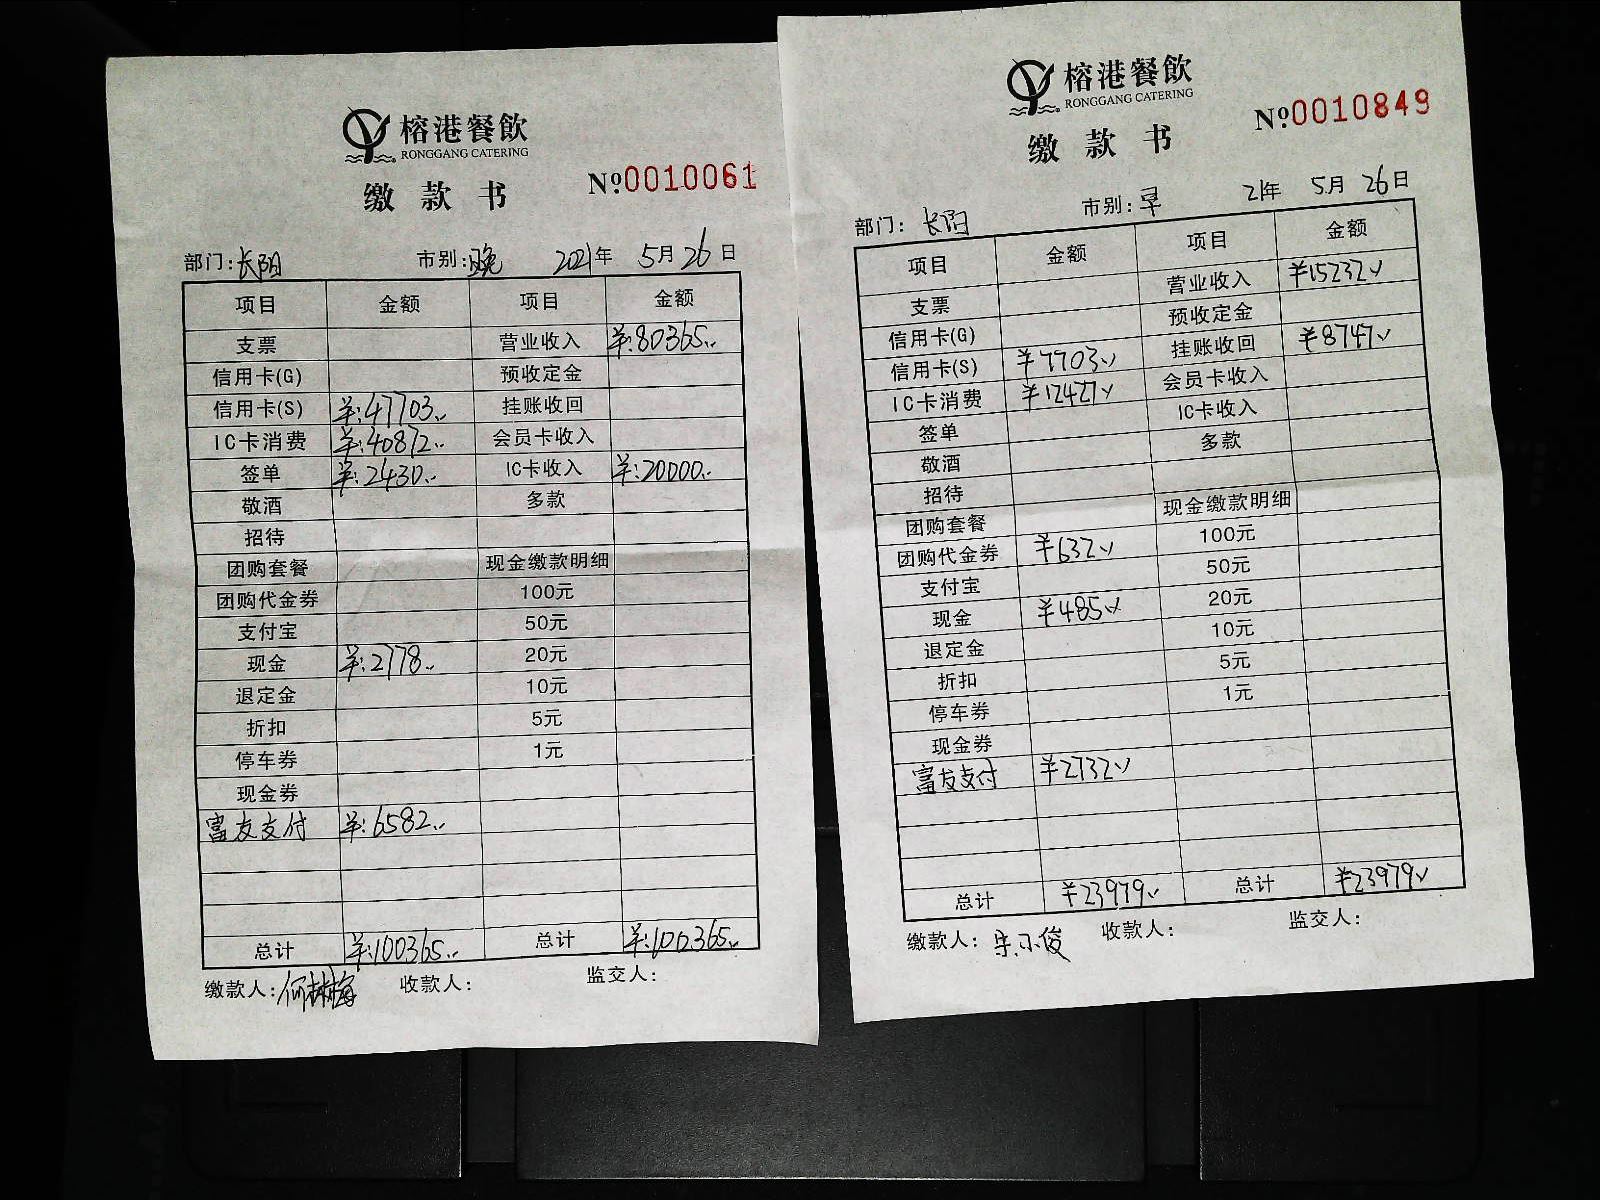 榕港餐飲
RONGGANG CATERING
缴款书
Nº0010061
部门:长阳 市别:晚 2021年 5月26日
项目 金额 项目 金额
支票 营业收入 ¥:80365..
信用卡(G) 预收定金
信用卡(S) ¥:47703.. 挂账收回
IC卡消费 ¥:40872.. 会员卡收入
签单 ¥:2430.. IC卡收入 ¥:20000..
敬酒 多款
招待
团购套餐 现金缴款明细
团购代金券 100元
支付宝 50元
现金 ¥:2778.. 20元
退定金 10元
折扣 5元
停车券 1元
现金券
富友支付 ¥:6582..
总计 ¥:100365.. 总计 ¥:100365..
缴款人:何林梅 收款人: 监交人:
榕港餐飲
RONGGANG CATERING
缴款书
Nº0010849
部门:长阳 市别:早 21年 5月26日
项目 金额 项目 金额
支票 营业收入 ¥15232
信用卡(G) 预收定金
信用卡(S) ¥7703 挂账收回 ¥8747
IC卡消费 ¥12427 会员卡收入
签单 IC卡收入
敬酒 多款
招待
团购套餐 现金缴款明细
团购代金券 ¥632 100元
支付宝 50元
现金 ¥485 20元
退定金 10元
折扣 5元
停车券 1元
现金券
富友支付 ¥2732
总计 ¥23979 总计 ¥23979
缴款人: 收款人: 监交人: